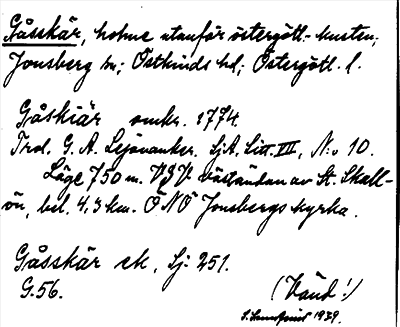 Gåsskär, holme utanför östergötl. kusten;
Jonsberg sn; Östkinds hd; Östergötl. l.
Gåskiär omkr. 1774.
Trol. G. A. Lejonanker. SjA, Litt. VII, N:o 10.
Läge 750 m. VSV väständan av St. Skall-
ön, bel. 4.3 km. ÖNÖ Jonsbergs kyrka.
Gåsskär ek, Sj: 251.
G. 56.
(Vänd!)
1939.